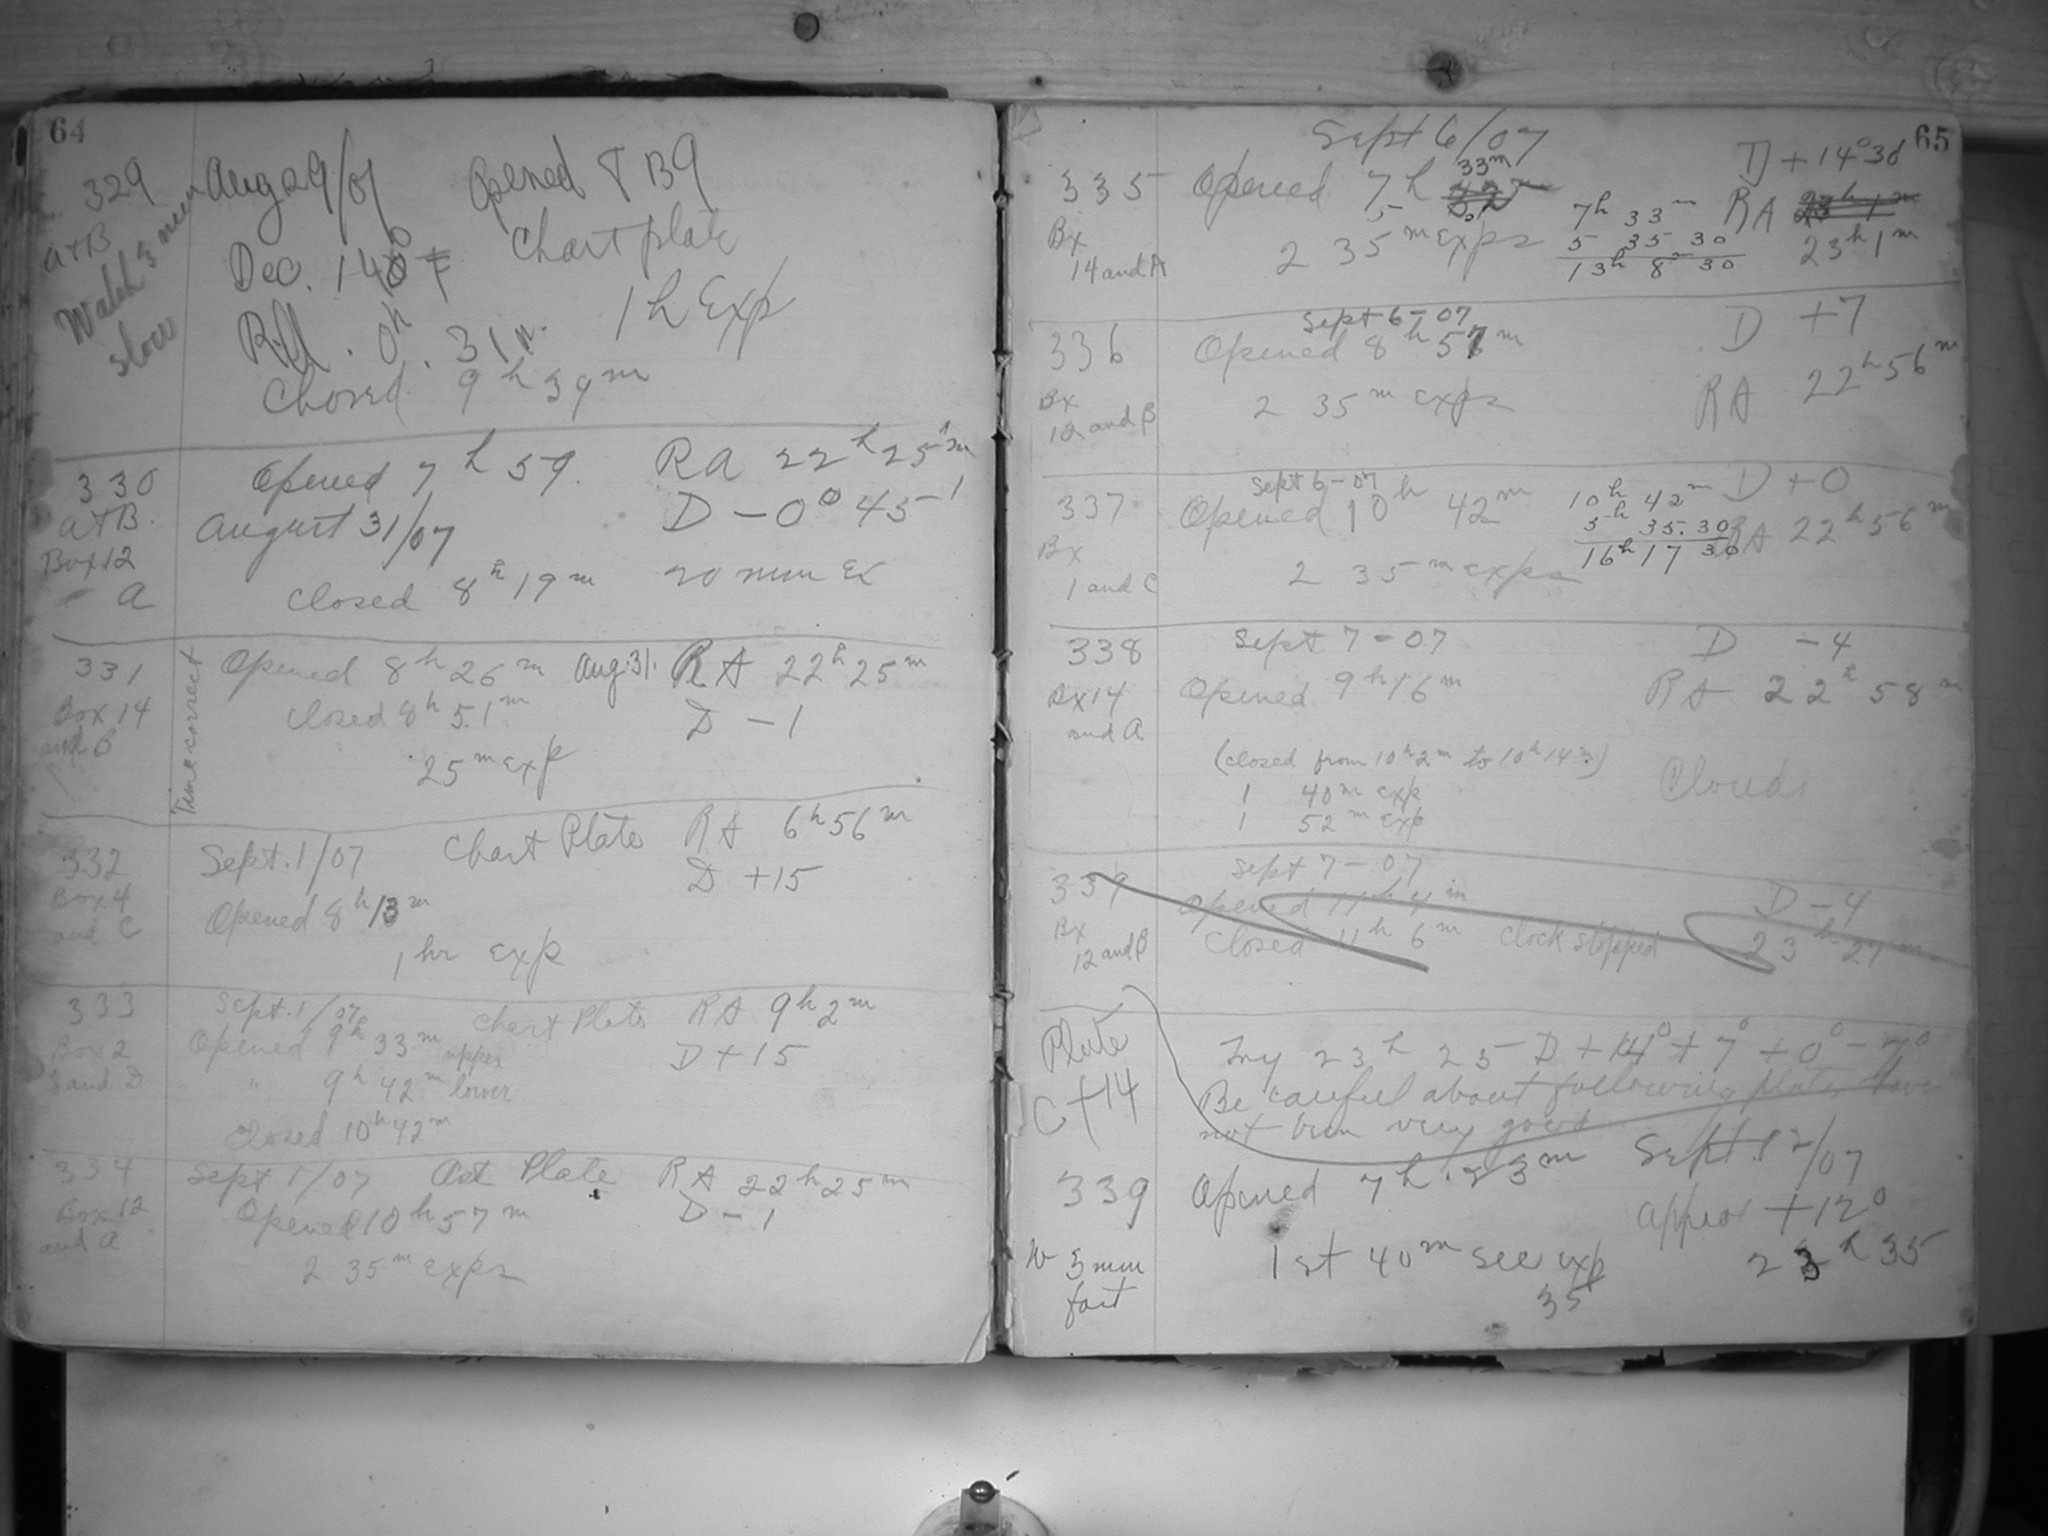 64
329 Aug 29/07 Opened 8 39
A+B Dec. 14 Chart plate
Watch 3 min slow
RA. 0h. 31m. 1h Exp
Closed 9h 39m
330 Opened 7h 59. RA 22h 25m
A+B. August 31/07 D -0° 45'
Box 12
A Closed 8h 19m 20 min Ex
331 Opened 8h 26m Aug. 31. RA 22h 25m
Box 14 Closed 8h 51m D -1
and B 25m exp
Time correct
332 Sept. 1/07 Chart Plate RA 6h 56m
Box 4 D +15
and C Opened 8h 13m
1 hr exp
333 Sept. 1/07 Chart Plate RA 9h 2m
Box 2 Opened 9h 33m upper D +15
and D " 9h 42m lower
Closed 10h 42m
334 Sept 1/07 Ast Plate RA 22h 25m
Box 12 Opened 10h 57m D -1
and A
2 35m exps
65
Sept 6/07
335 Opened 7h 33m D +14° 30
Bx 7h 33m RA 23h 1m
14 and A 2 35m exps 5 35 30 23h 1m
13h 8m 30
Sept 6-07
336 Opened 8h 57m D +7
Bx
12 and B 2 35m exps RA 22h 56m
Sept 6-07
337 Opened 10h 42m 10h 42m D +0
Bx 5h 35.30 RA 22h 56m
1 and C 2 35m exps 16h 17 30
338 Sept 7-07 D -4
Bx 14 Opened 9h 16m RA 22h 58m
and A
(closed from 10h 2m to 10h 14m) Clouds
1 40m exp
1 52m exp
339 Sept 7-07
Bx Opened 11h 4m D -4
12 and B Closed 11h 6m Clock stopped 23h 27m
Plate Try 23h 25 D +14° +7° +0° -7°
C+14 Be careful about following plates have
not been very good
Sept. 12/07
339 Opened 7h 23m
approx +12°
W 3 min fast 1st 40m sec exp 23h 35
35